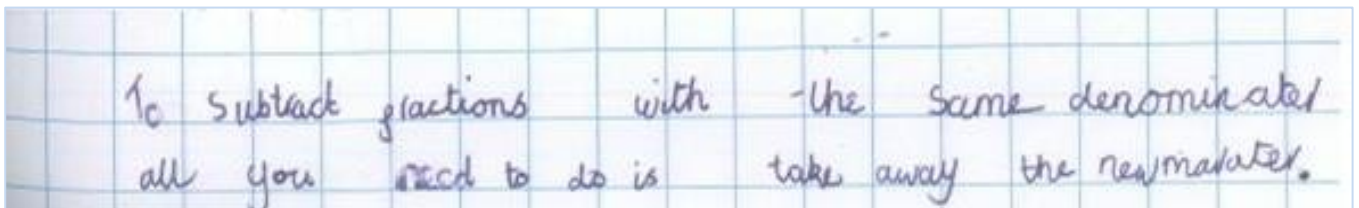 To subtract fractions with the same denominater
all you need to do is take away the newmarater.